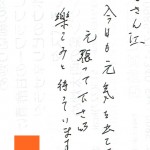 さん江
今日も元気を出して
元張って下さい
楽しみと待っています